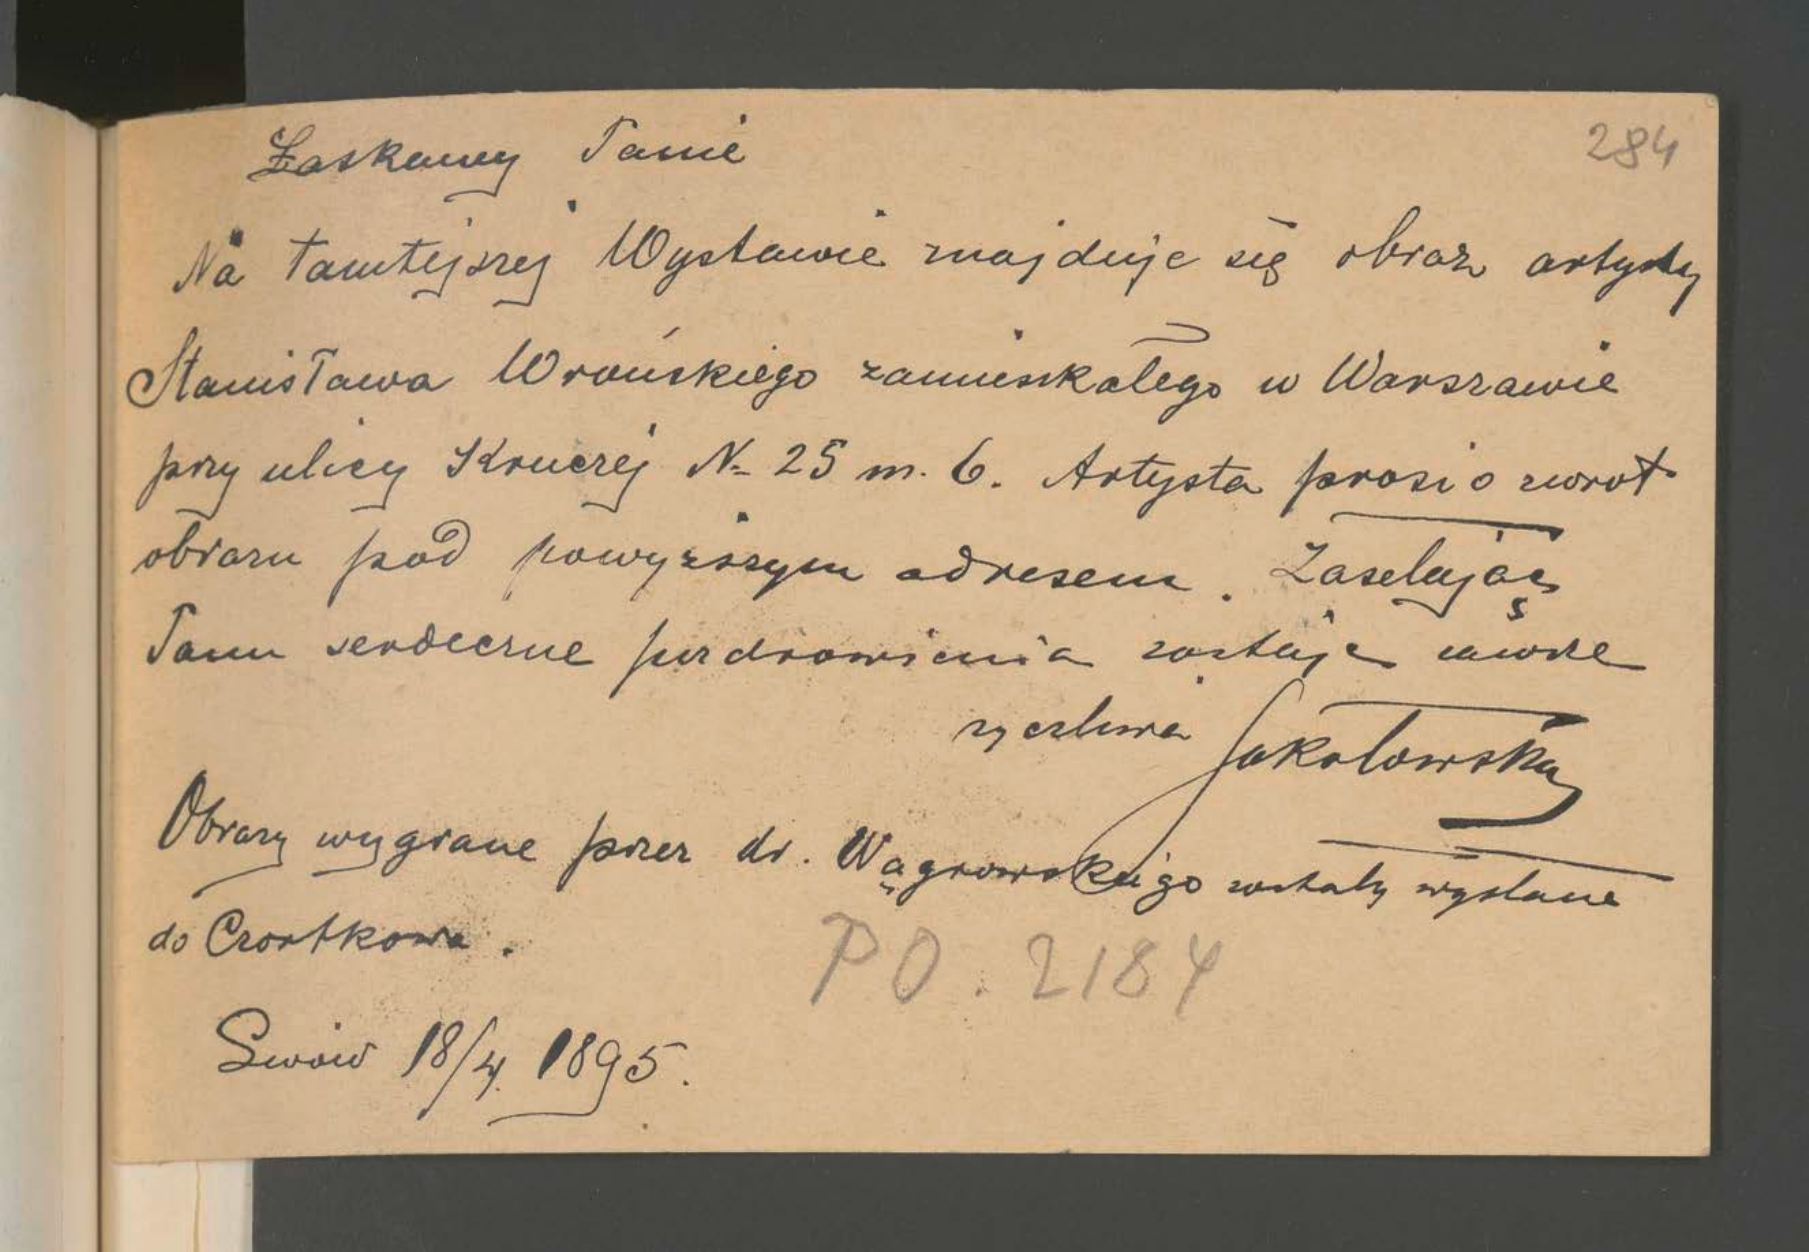 284
Łaskawy Panie
Na tamtejszej Wystawie znajduje się obraz artysty
Stanisława Wrońskiego zamieszkałego w Warszawie
przy ulicy Kruczej No 25 m. 6. Artysta prosi o zwrot
obrazu pod powyższym adresem. Zasełając
Panu serdeczne pozdrowienia zostaję zawsze
życzliwa Sokołowska
Obrazy wygrane przez dr. Wągrowskiego zostały wysłane
do Czortkowa.
PO. 2184
Lwów 18/4 1895.